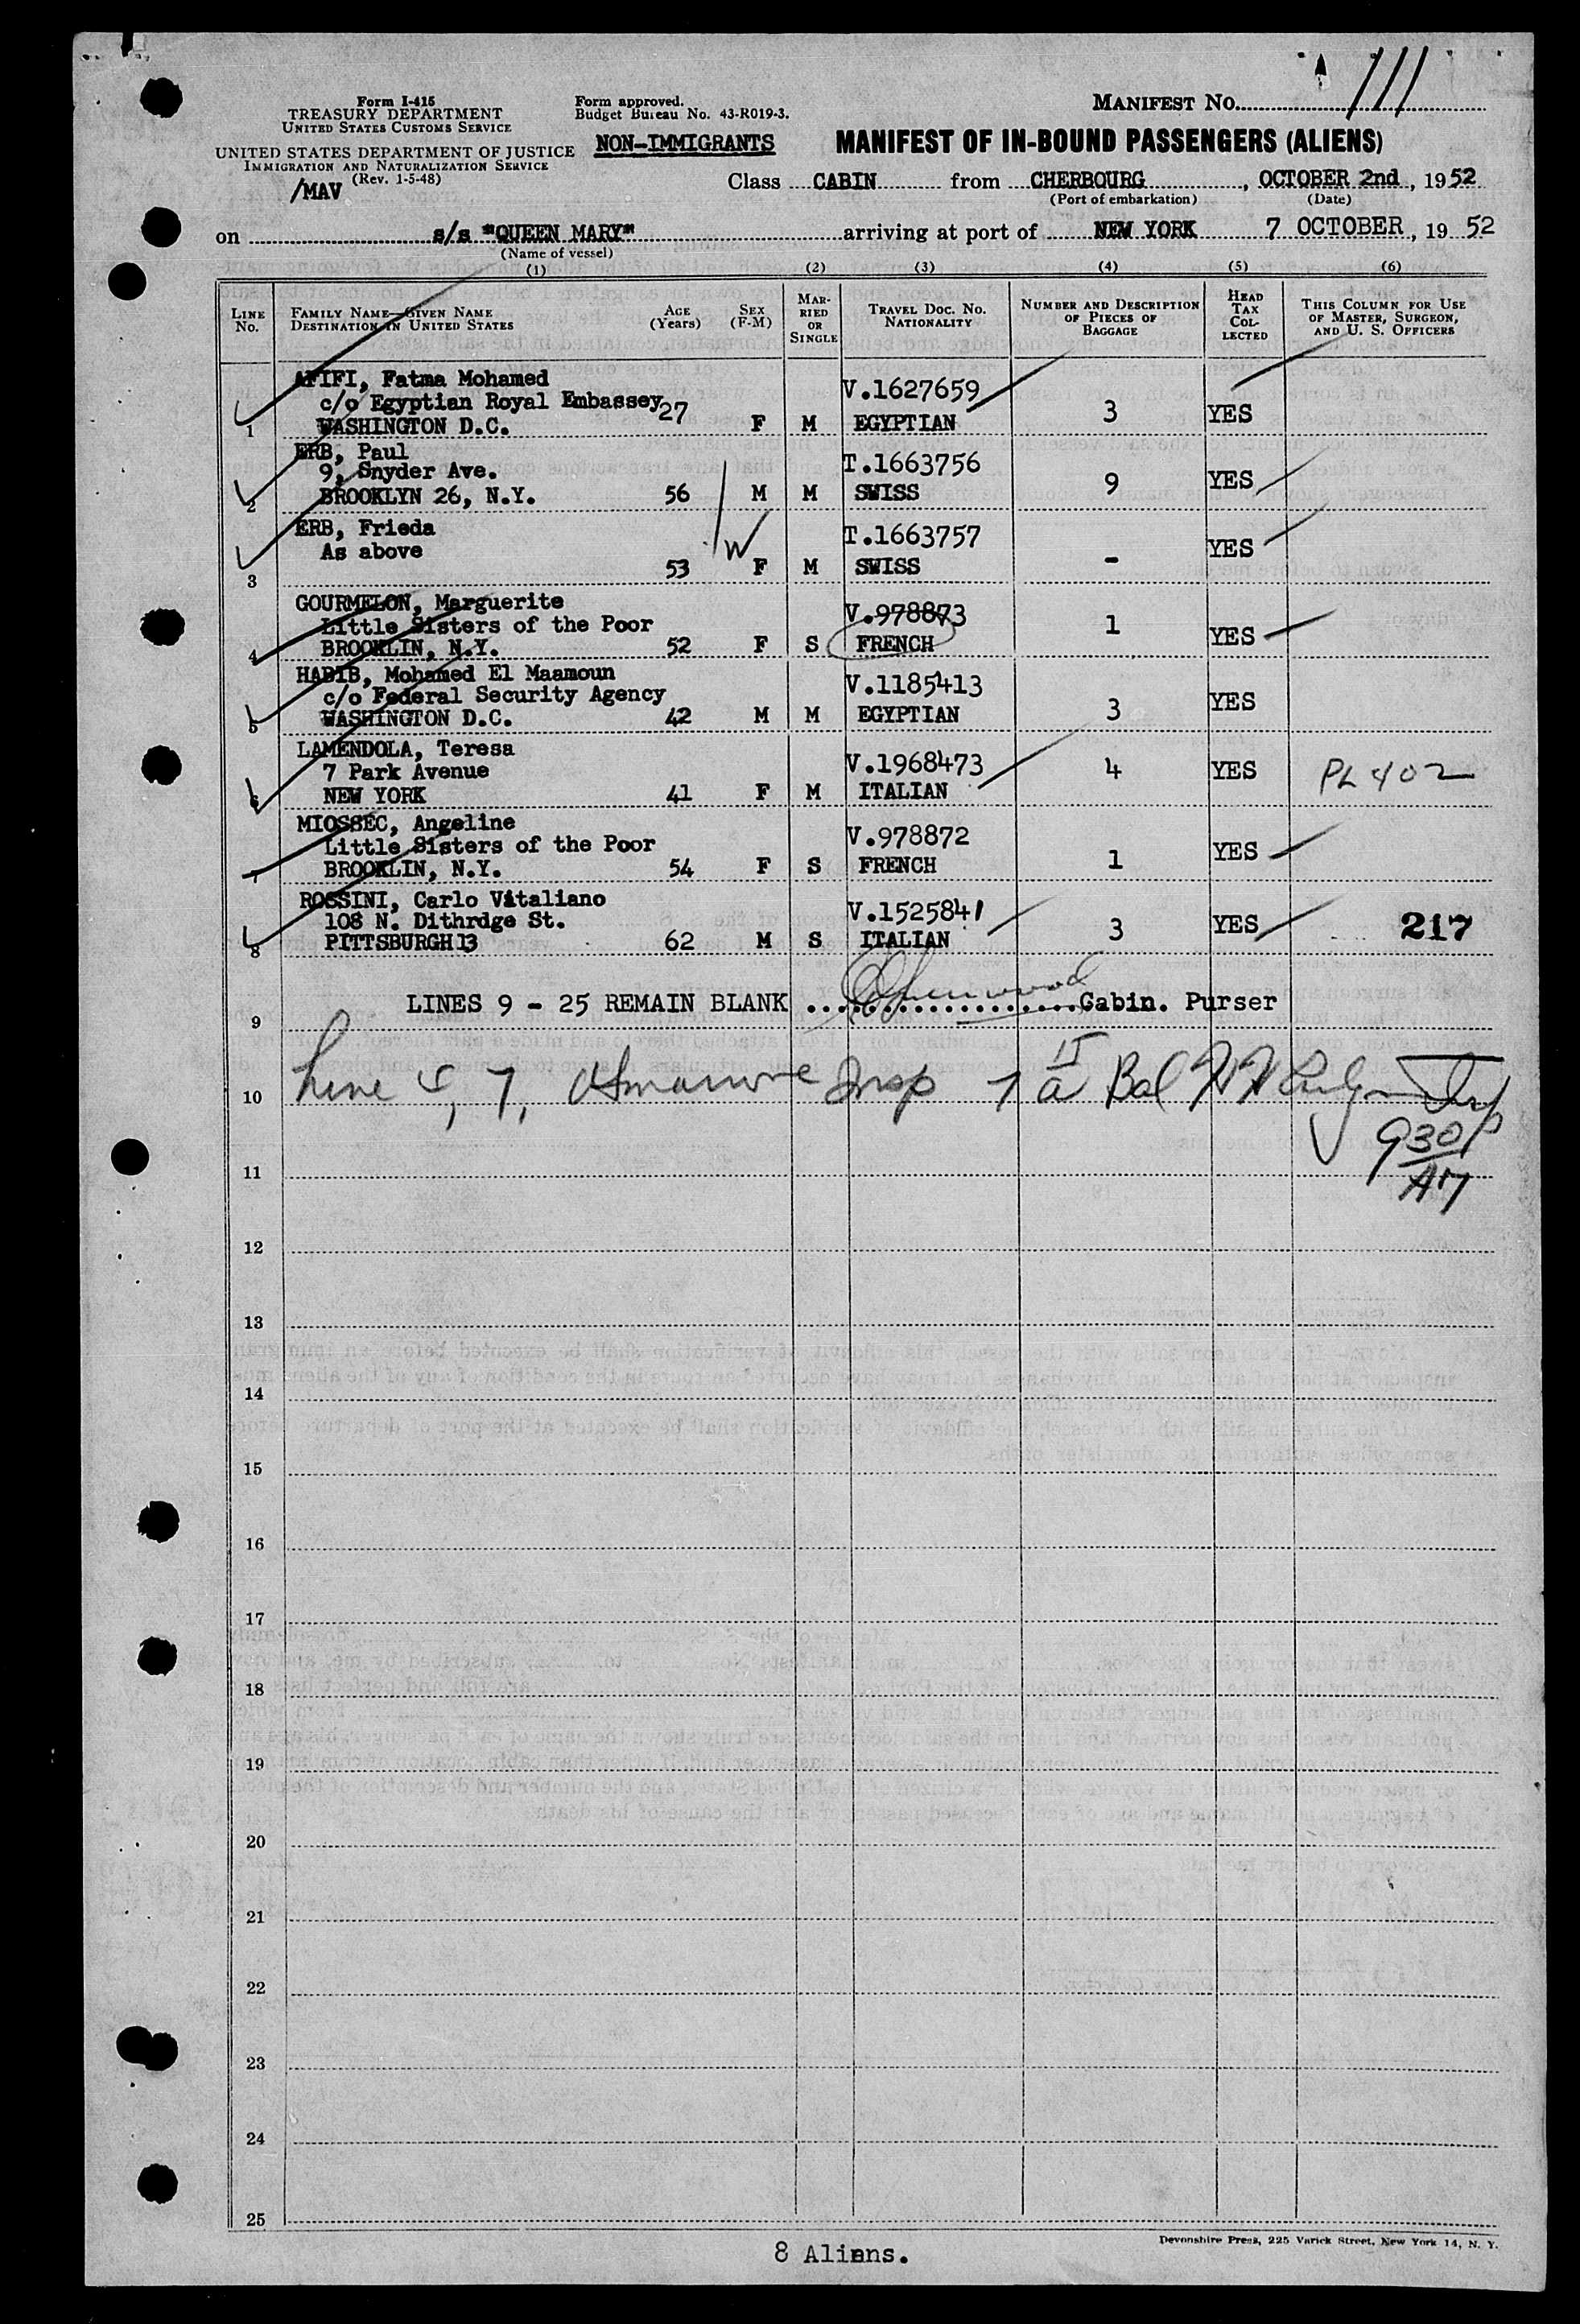 Form I-415
TREASURY DEPARTMENT
UNITED STATES CUSTOMS SERVICE
UNITED STATES DEPARTMENT OF JUSTICE
IMMIGRATION AND NATURALIZATION SERVICE
(Rev. 1-5-48)
/MAV
Form approved.
Budget Bureau No. 43-R019-3.
NON-IMMIGRANTS
MANIFEST NO. 111
MANIFEST OF IN-BOUND PASSENGERS (ALIENS)
Class CABIN from CHERBOURG, OCTOBER 2nd, 1952
(Port of embarkation) (Date)
on s/s "QUEEN MARY" arriving at port of NEW YORK 7 OCTOBER, 19 52
(Name of vessel)
(1) (2) (3) (4) (5) (6)
LINE NO. FAMILY NAME—GIVEN NAME DESTINATION IN UNITED STATES AGE (YEARS) SEX (F-M) MARRIED OR SINGLE TRAVEL DOC. NO. NATIONALITY NUMBER AND DESCRIPTION OF PIECES OF BAGGAGE HEAD TAX COLLECTED THIS COLUMN FOR USE OF MASTER, SURGEON, AND U. S. OFFICERS
AFIFI, Fatma Mohamed V.1627659
c/o Egyptian Royal Embassey 27 3 YES
1 WASHINGTON D.C. F M EGYPTIAN
ERB, Paul T.1663756
9, Snyder Ave. 9 YES
2 BROOKLYN 26, N.Y. 56 M M SWISS
ERB, Frieda T.1663757
As above W - YES
3 53 F M SWISS
GOURMELON, Marguerite V.978873
Little Sisters of the Poor 1 YES
4 BROOKLIN, N.Y. 52 F S FRENCH
HABIB, Mohamed El Maamoun V.1185413
c/o Federal Security Agency 3 YES
5 WASHINGTON D.C. 42 M M EGYPTIAN
LAMENDOLA, Teresa V.1968473
7 Park Avenue 4 YES PL 402
6 NEW YORK 41 F M ITALIAN
MIOSSEC, Angeline V.978872
Little Sisters of the Poor 1 YES
7 BROOKLIN, N.Y. 54 F S FRENCH
ROSSINI, Carlo Vitaliano V.1525841
108 N. Dithrdge St. 3 YES 217
8 PITTSBURGH 13 62 M S ITALIAN
9 LINES 9 - 25 REMAIN BLANK Cabin. Purser
10 Line 4, 7, Insp Bal
930
AM
11
12
13
14
15
16
17
18
19
20
21
22
23
24
25
8 Aliens.
Devonshire Press, 225 Varick Street, New York 14, N. Y.